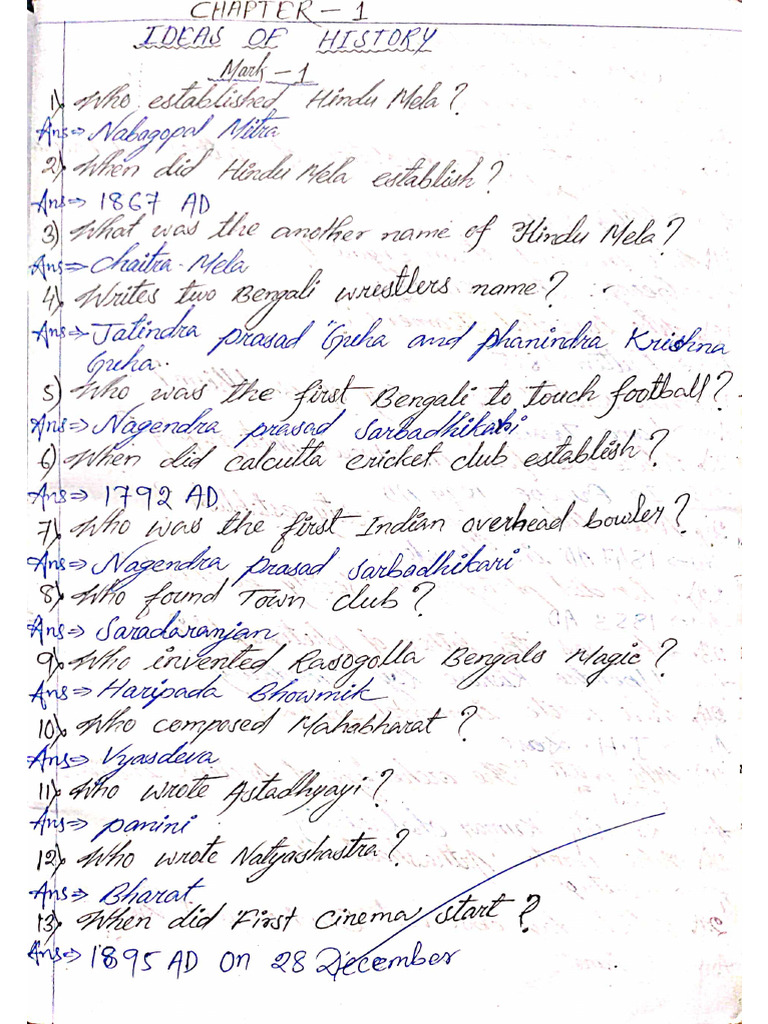 CHAPTER - 1
IDEAS OF HISTORY
Mark - 1
1) Who established Hindu Mela?
Ans⇒ Nabagopal Mitra
2) When did Hindu Mela establish?
Ans⇒ 1867 AD
3) What was the another name of Hindu Mela?
Ans⇒ Chaitra Mela
4) Writes two Bengali wrestlers name?
Ans⇒ Jatindra prasad Guha and phanindra Krishna
Guha.
5) Who was the first Bengali to touch football?
Ans⇒ Nagendra prasad Sarbadhikari
6) When did calcutta cricket club establish?
Ans⇒ 1792 AD
7) Who was the first Indian overhead bowler?
Ans⇒ Nagendra prasad sarbadhikari
8) Who found Town club?
Ans⇒ Saradaranjan
9) Who invented Rasogolla Bengals Magic?
Ans⇒ Haripada Bhowmik
10) Who composed Mahabharat?
Ans⇒ Vyasdeva
11) Who wrote Astadhyayi?
Ans⇒ panini
12) Who wrote Natyashastra?
Ans⇒ Bharat
13) When did First Cinema start?
Ans⇒ 1895 AD on 28 December